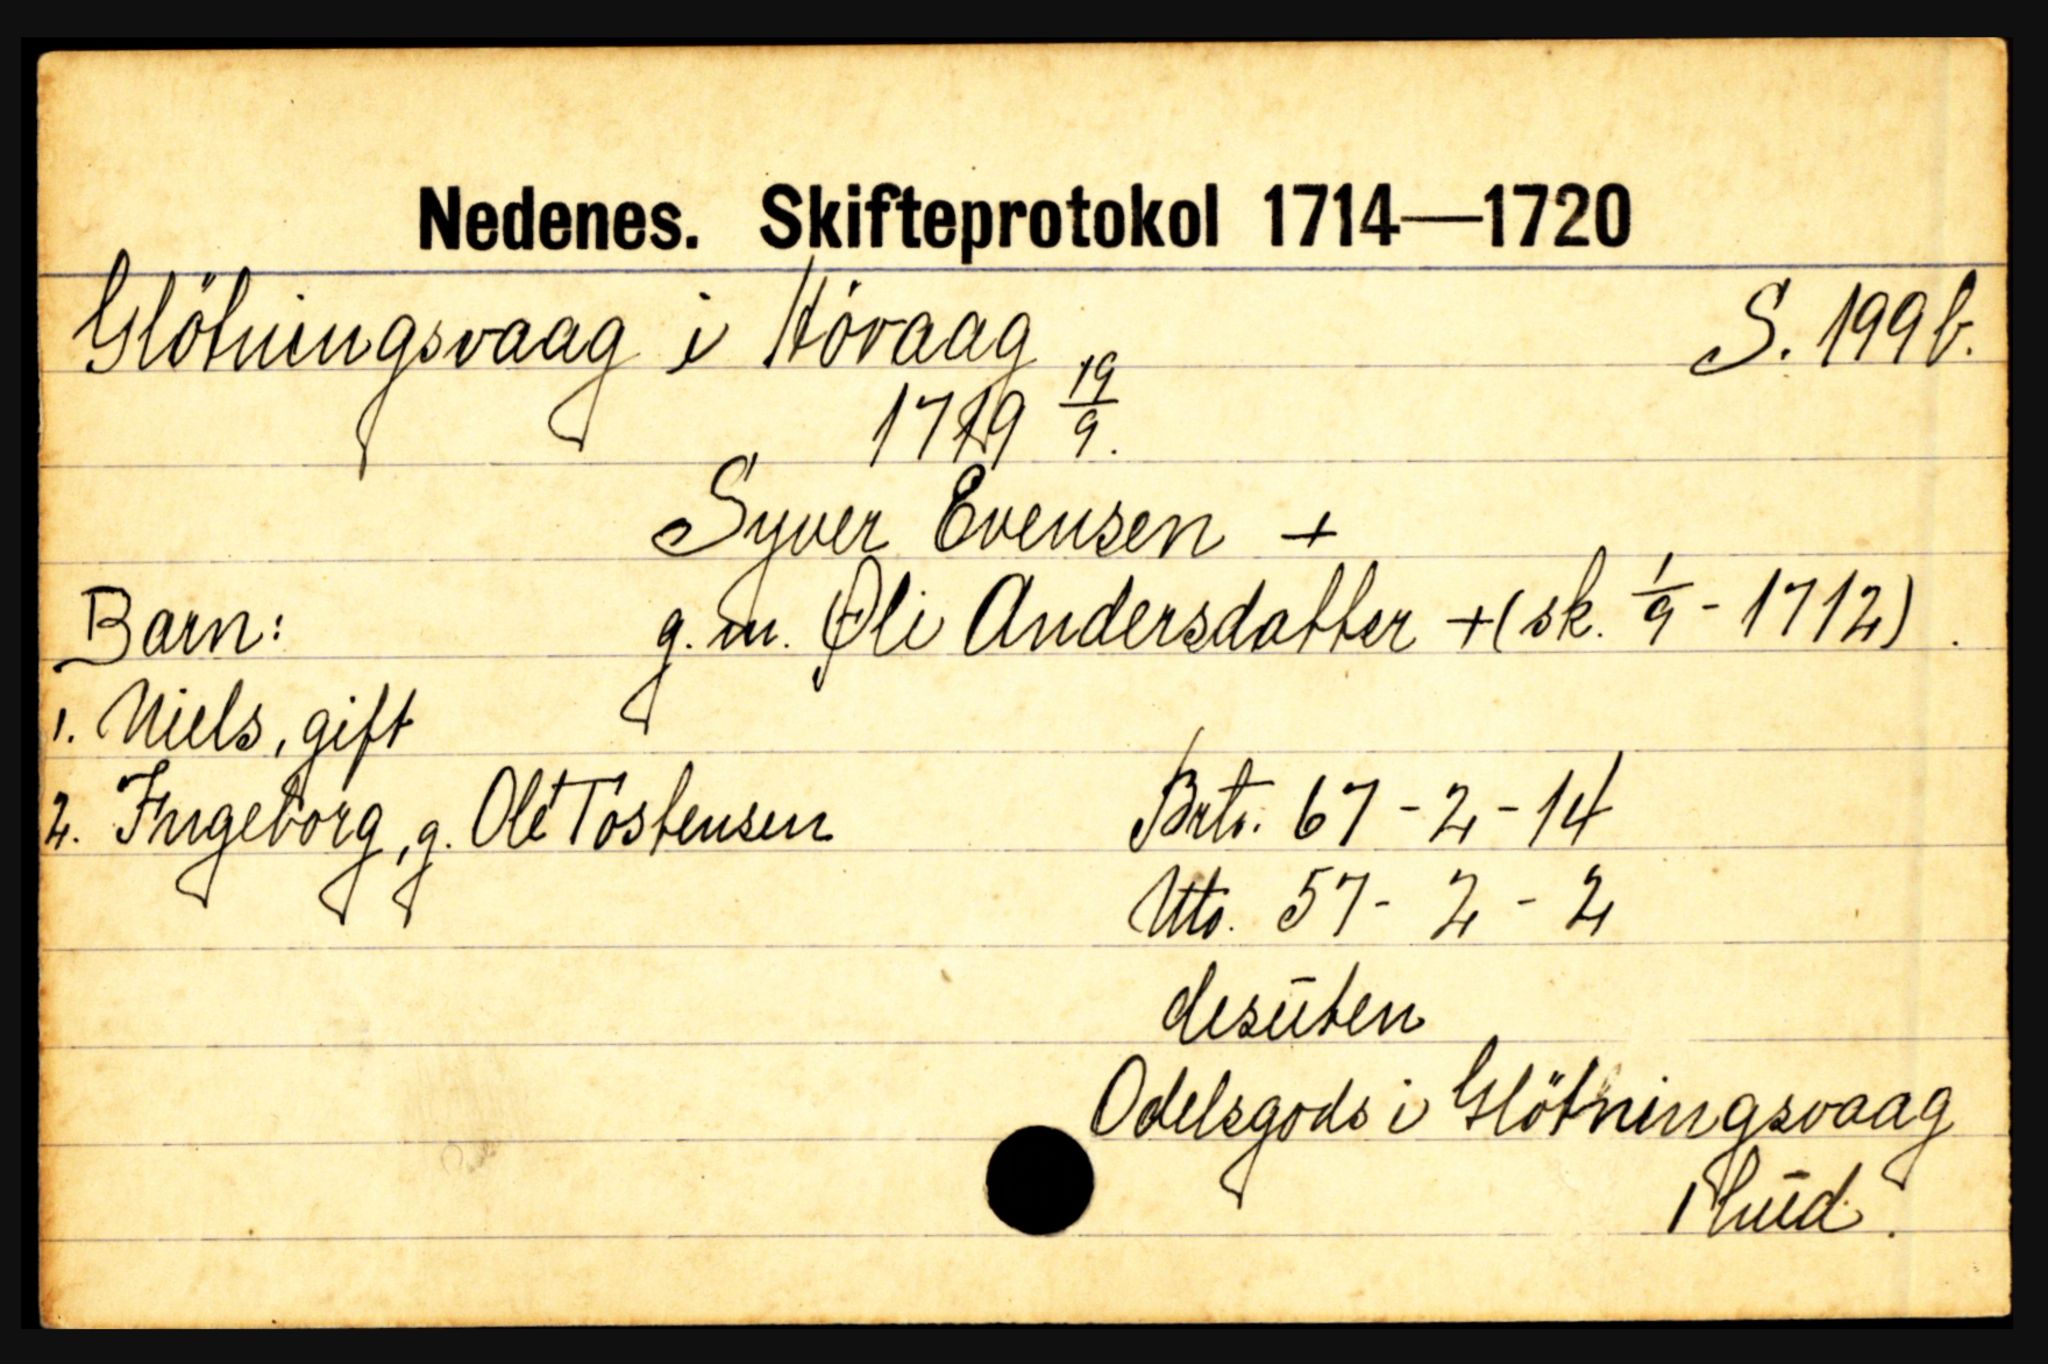 Nedenes. Skifteprotokol 1714—1720
Glötningsvaag i Hövaag S. 199b.
1719 19/9.
Syver Evensen +
Barn: g.m. Øli Andersdatter +(sk. 1/9 - 1712).
1. Niels, gift
2. Ingeborg, g. Ole Tostensen Brto. 67-2-14
Nto. 57-2-2
desuten
Odelsgods i Glötningsvaag
1 hud.